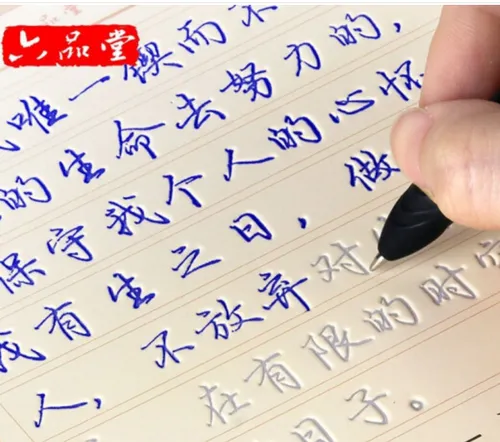 六品堂
唯一锲而不
的生命去努力的,
保守我个人的心怀
我有生之日,做
人,不放弃对
在有限的时
日子。